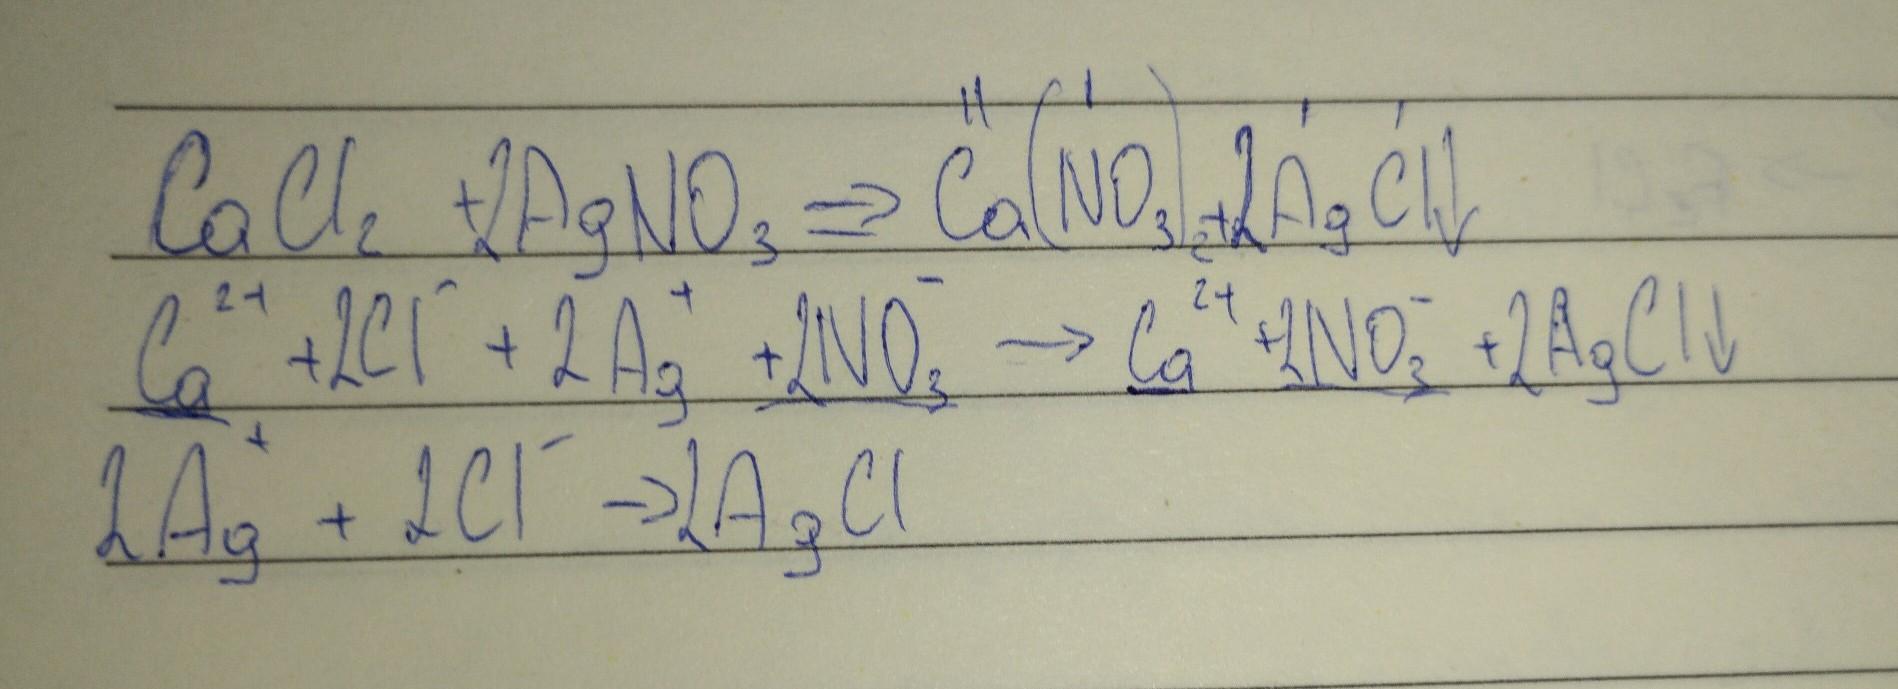 CaCl₂ +2AgNO₃ ⇒ Ca(NO₃)₂+2AgCl↓
Ca²⁺ +2Cl⁻ + 2Ag⁺ +2NO₃⁻ → Ca²⁺ +2NO₃⁻ +2AgCl↓
2Ag⁺ + 2Cl⁻ →2AgCl